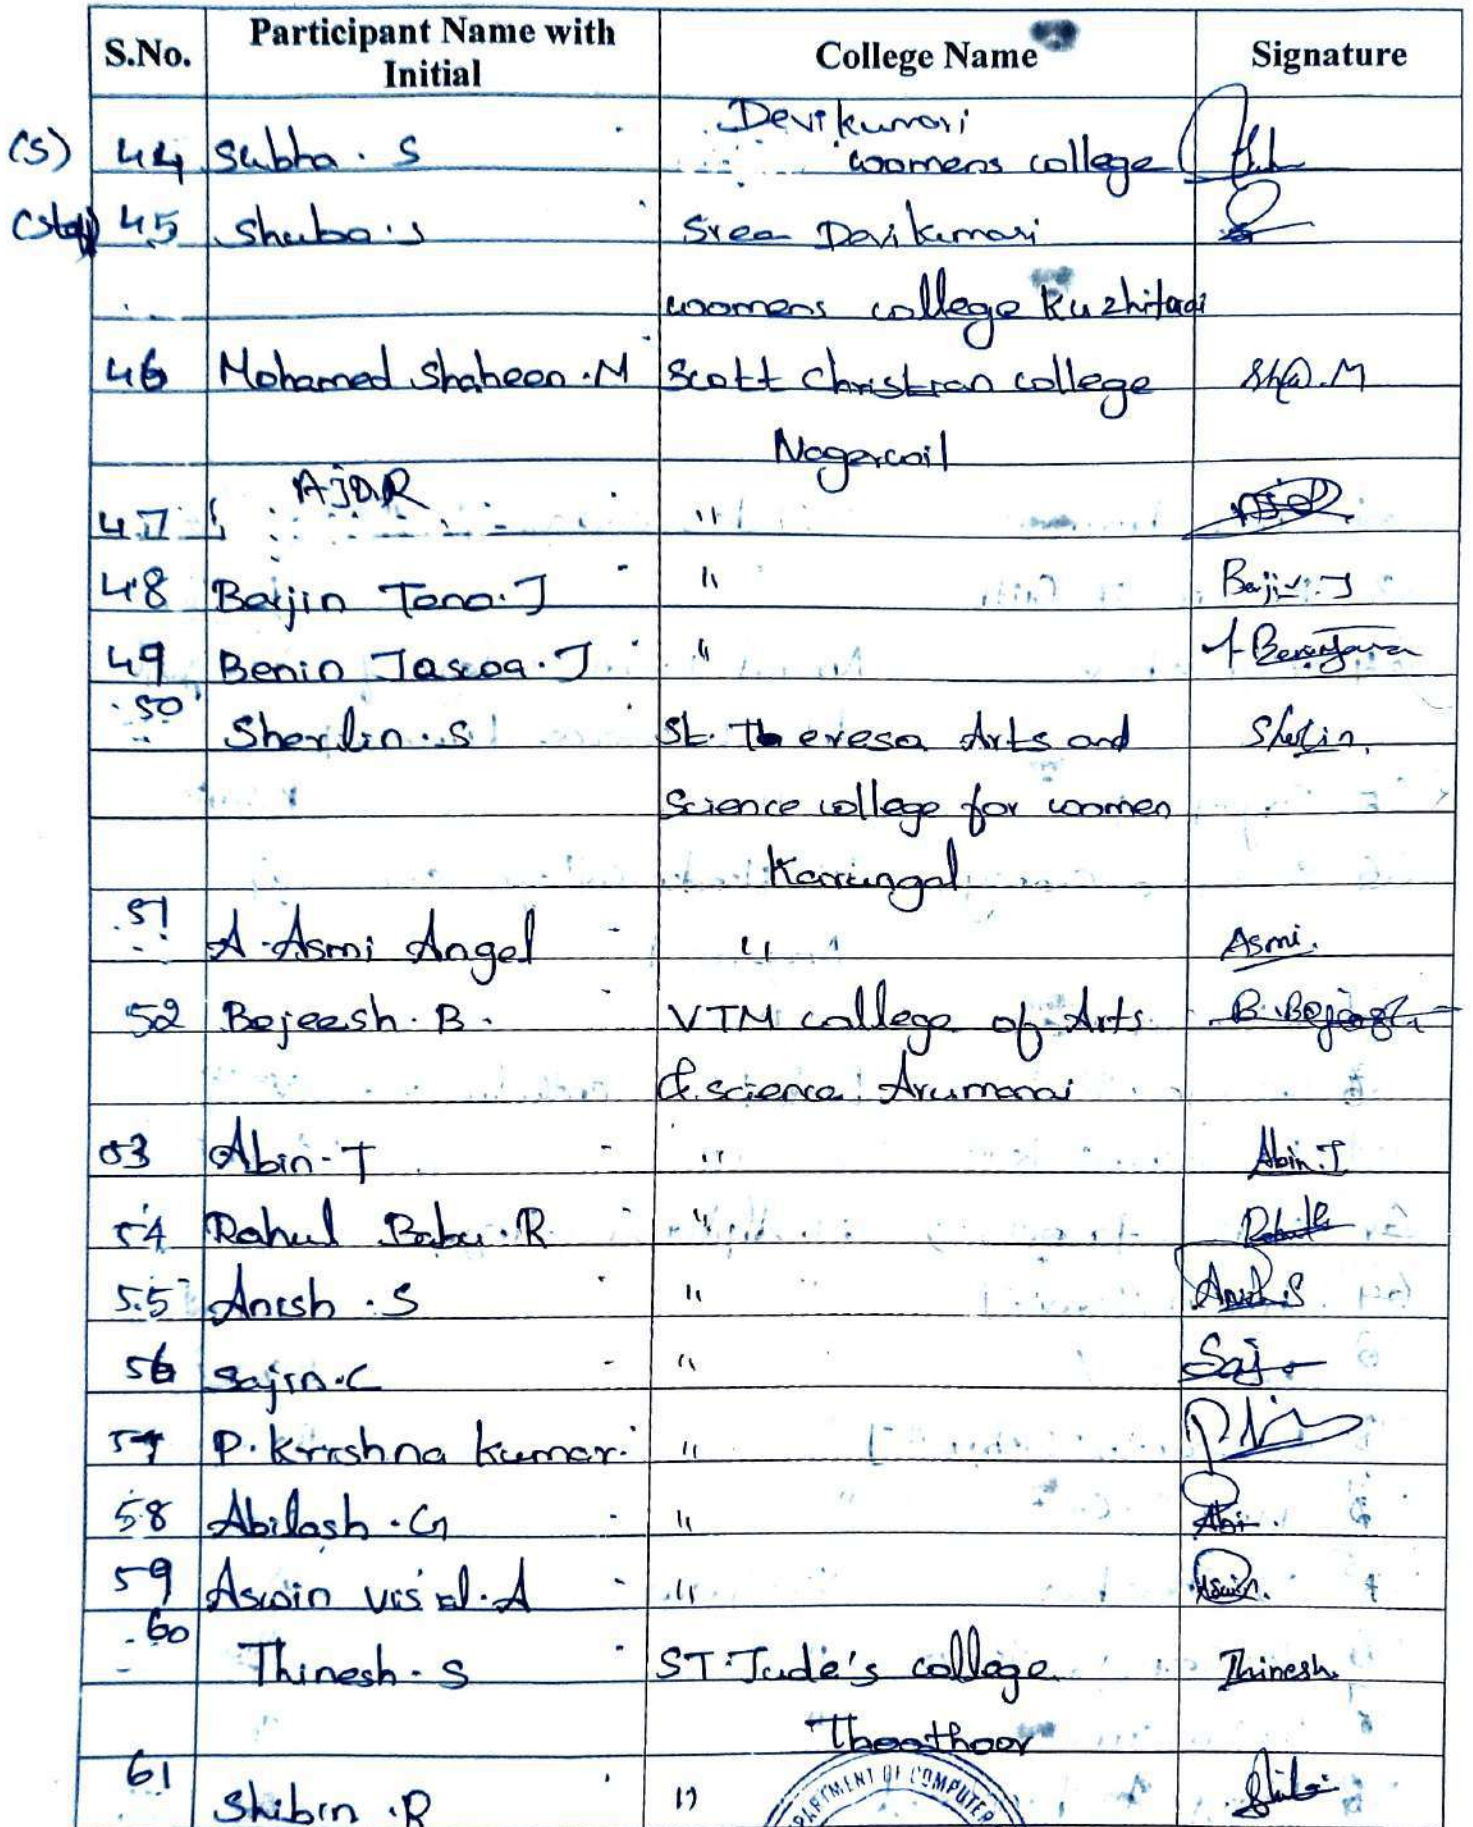 S.No. Participant Name with Initial College Name Signature
Devikumari
(S) 44 Subha. S womens college
(Staff) 45 Shuba.s Sree Devikumari
womens college Kuzhiturai
46 Mohamed Shaheen.M Scott Christian college Sh@.M
Nagercoil
47 AJO.R "
48 Berjin Tono.J " Berjin.J
49 Benin Jascoa.J "
50 Sherlin.S St. Theresa Arts and Sherlin.
Science college for women
Karungal
51 A.Asmi Angel " Asmi.
52 Bejeesh.B. VTM college of Arts B.Bejeesh
& science Arumanai
53 Abin.T " Abin.T
54 Rahul Babu.R "
55 Anish.S " Anish.S
56 Sajin.C " Saj
57 P.Krishna Kumar. "
58 Abilash.G " Abi.
59 Aswin visal.A " Aswin.
60 Thinesh.S ST.Jude's college Thinesh.
Thoothoor
61 Shibin.R "
DEPARTMENT OF COMPUTER